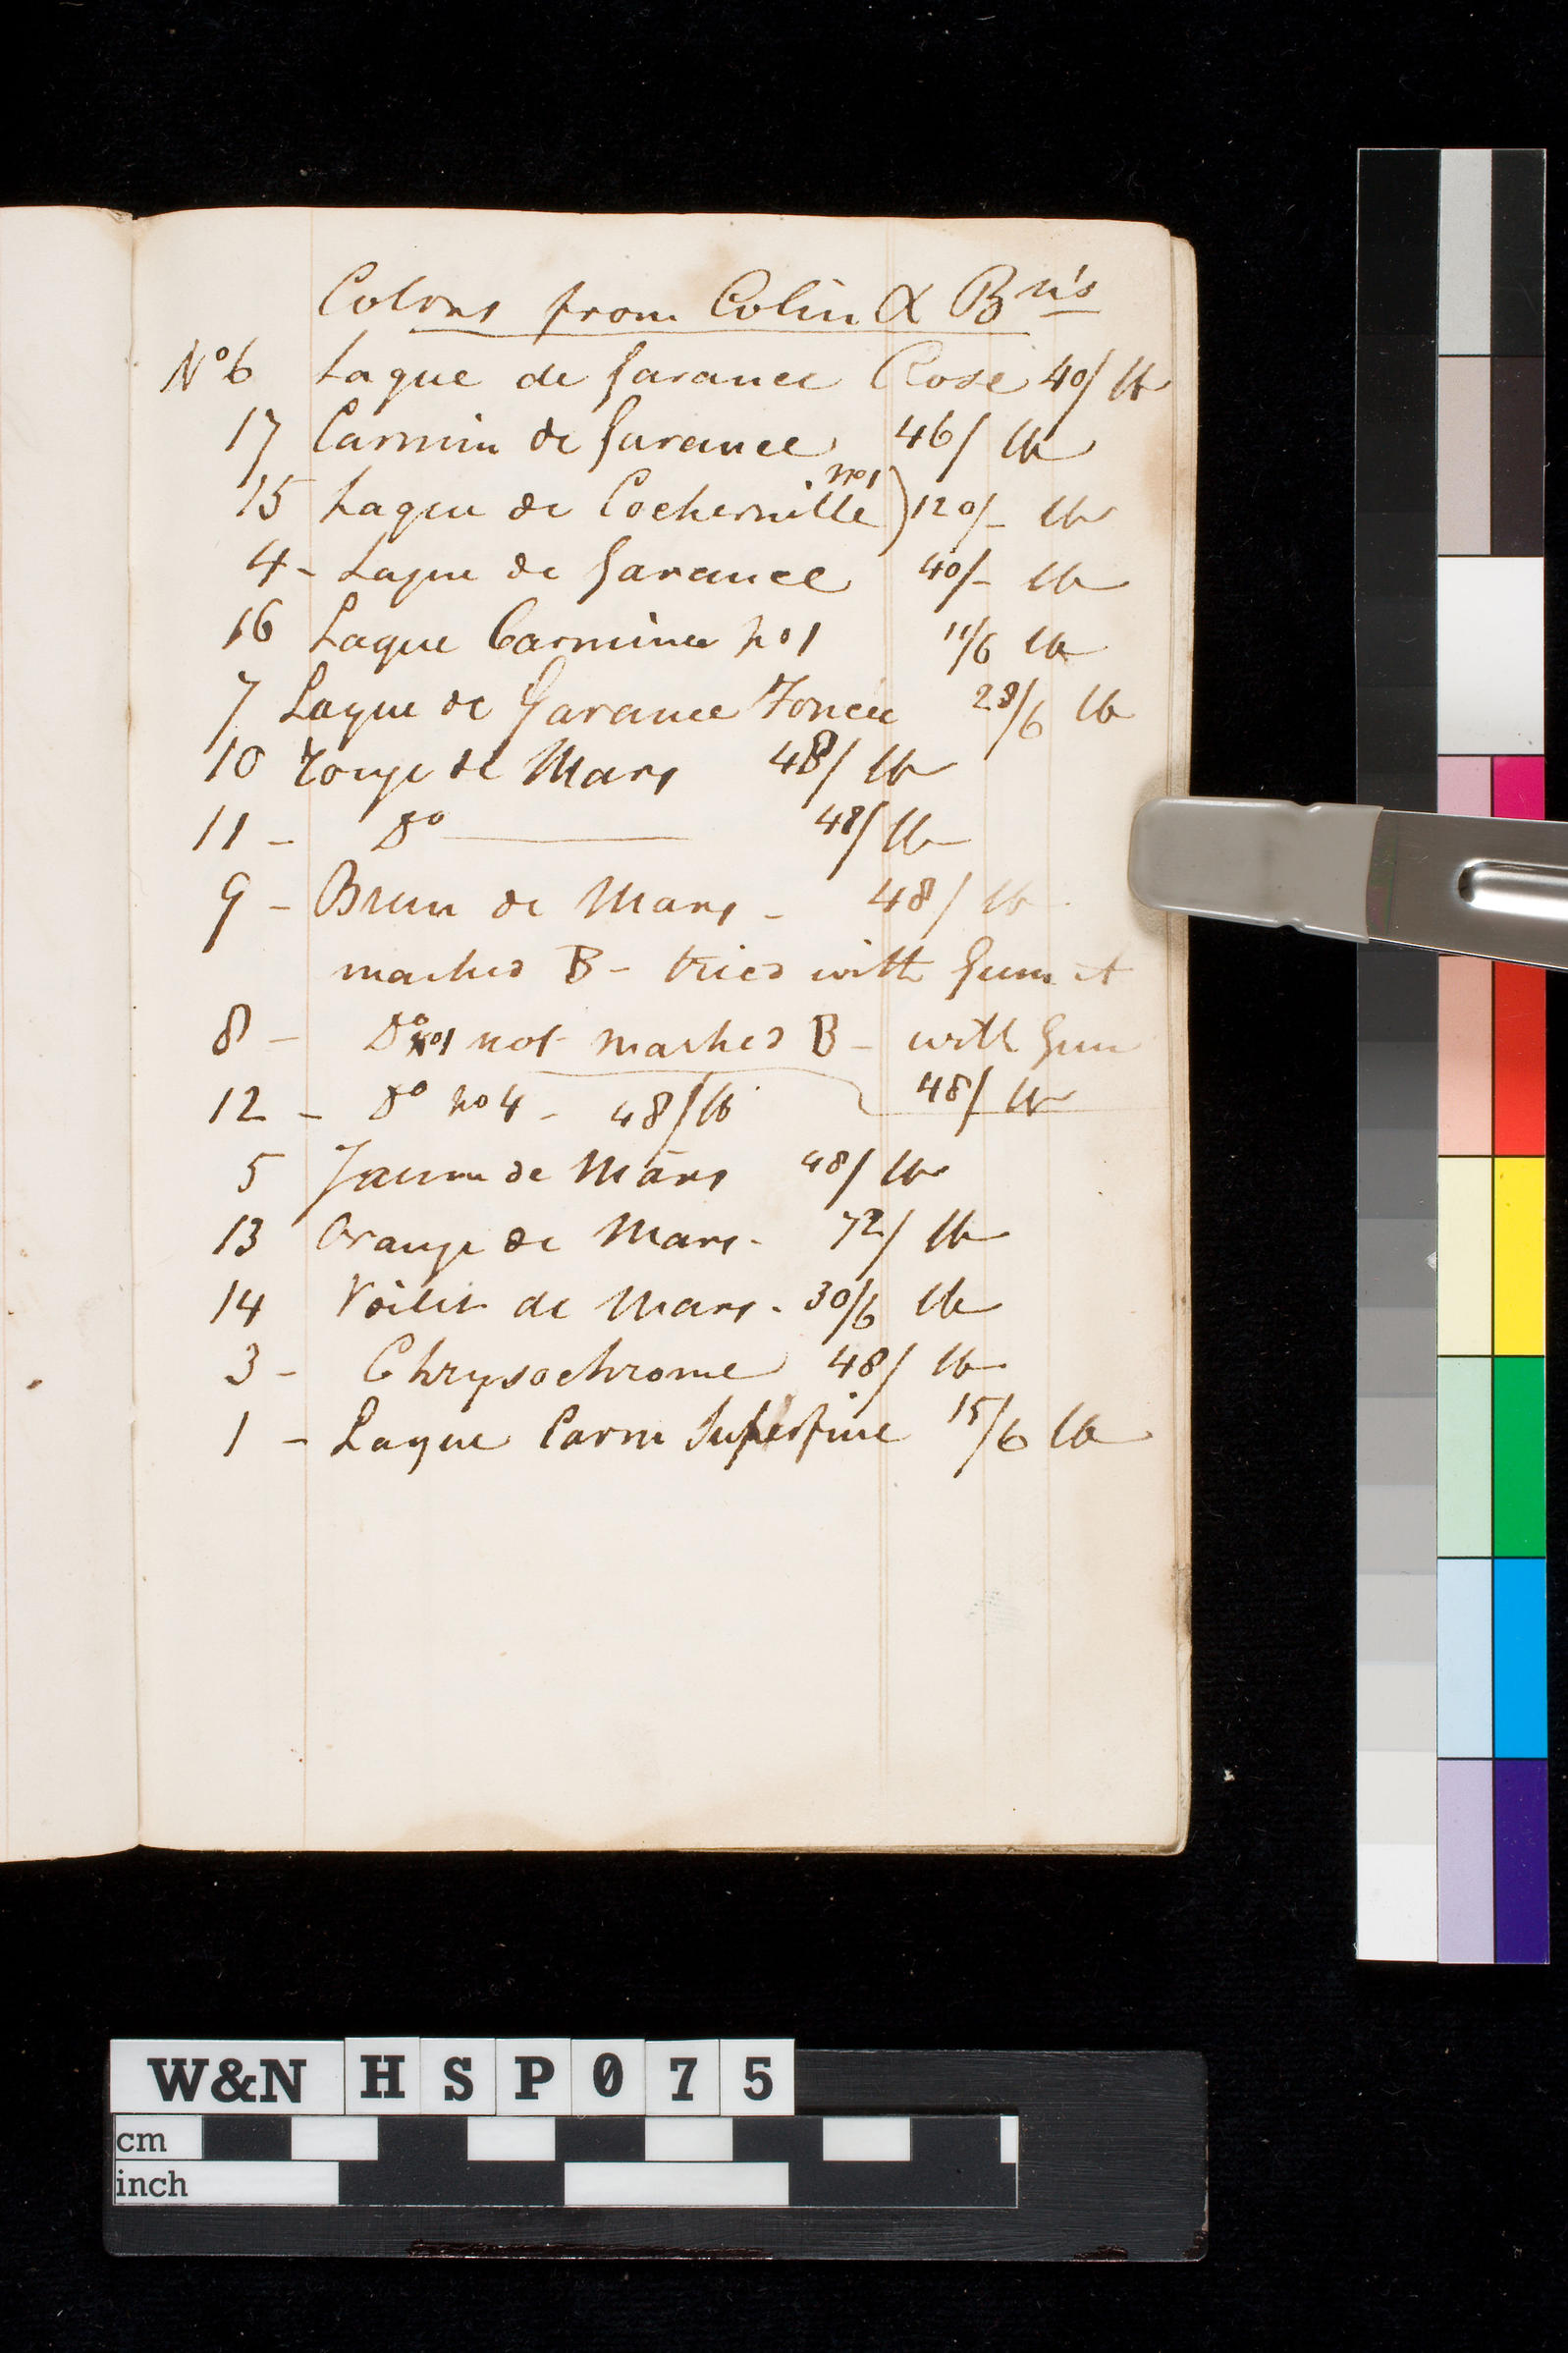 Colors from Colin &
No 6 Laque de Garance Rose 40/ lb
17 Carmin de Garance 46/ lb
no1
15 Laque de Cochernille) 120/- lb
4 - Laque de Garance 40/- lb
16 Laque Carminee no 1 11/6 lb
7 Laque de Garance Foncée 28/6 lb
10 rouge de Mars 48/ lb
11 - Do 48/ lb
9 - Brun de Mars - 48/ lb
marked B - tried with Gum
8 - Do no1 not marked B - with Gum
48/ lb
12 - Do no 4 - 48/ lb
5 Jaune de Mars 48/ lb
13 Orange de Mars - 72/ lb
14 Voilet de Mars - 30/6 lb
3 - Chrysochrome 48/ lb
1 - Laque Carm Superfine 15/6 lb
W&N HSP075
cm
inch